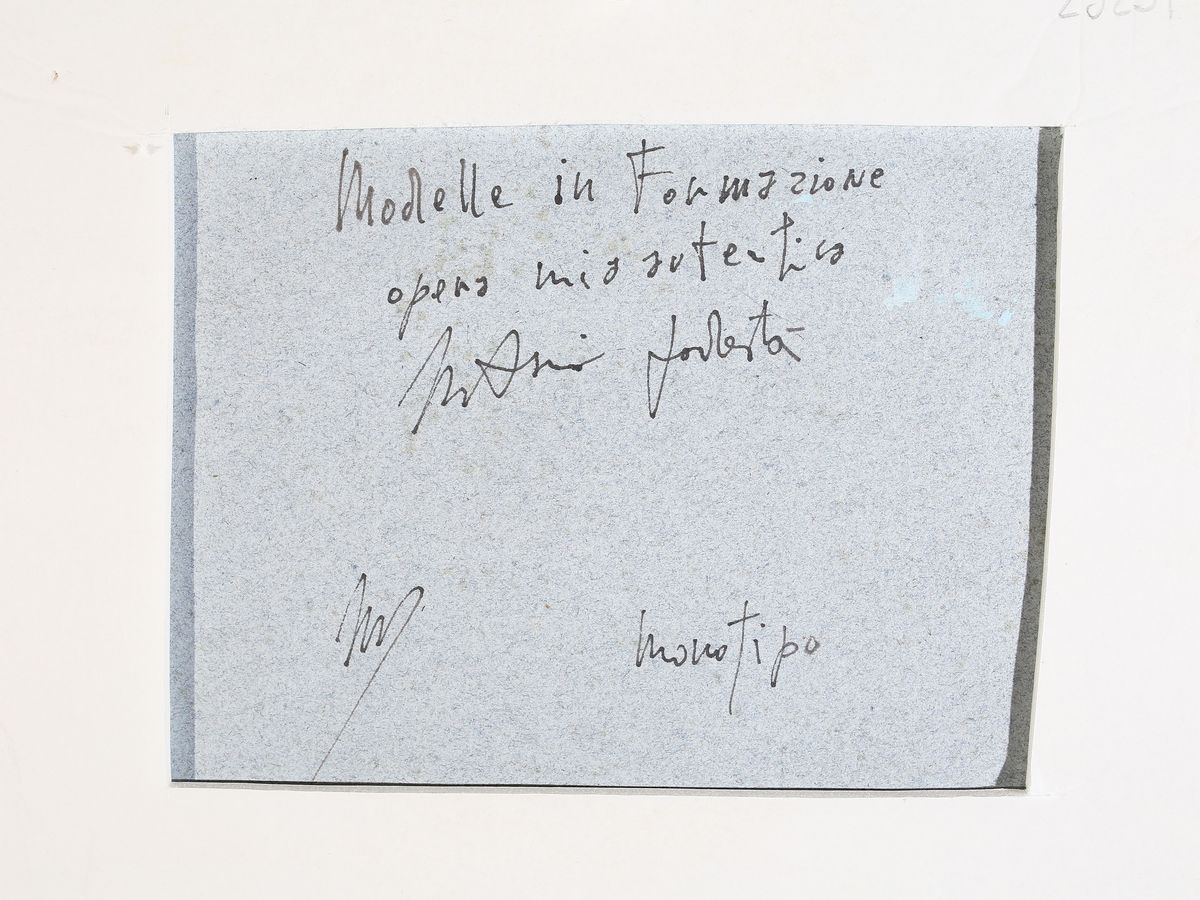 Modelle in Formazione
opera mia autentica
Podestà
monotipo